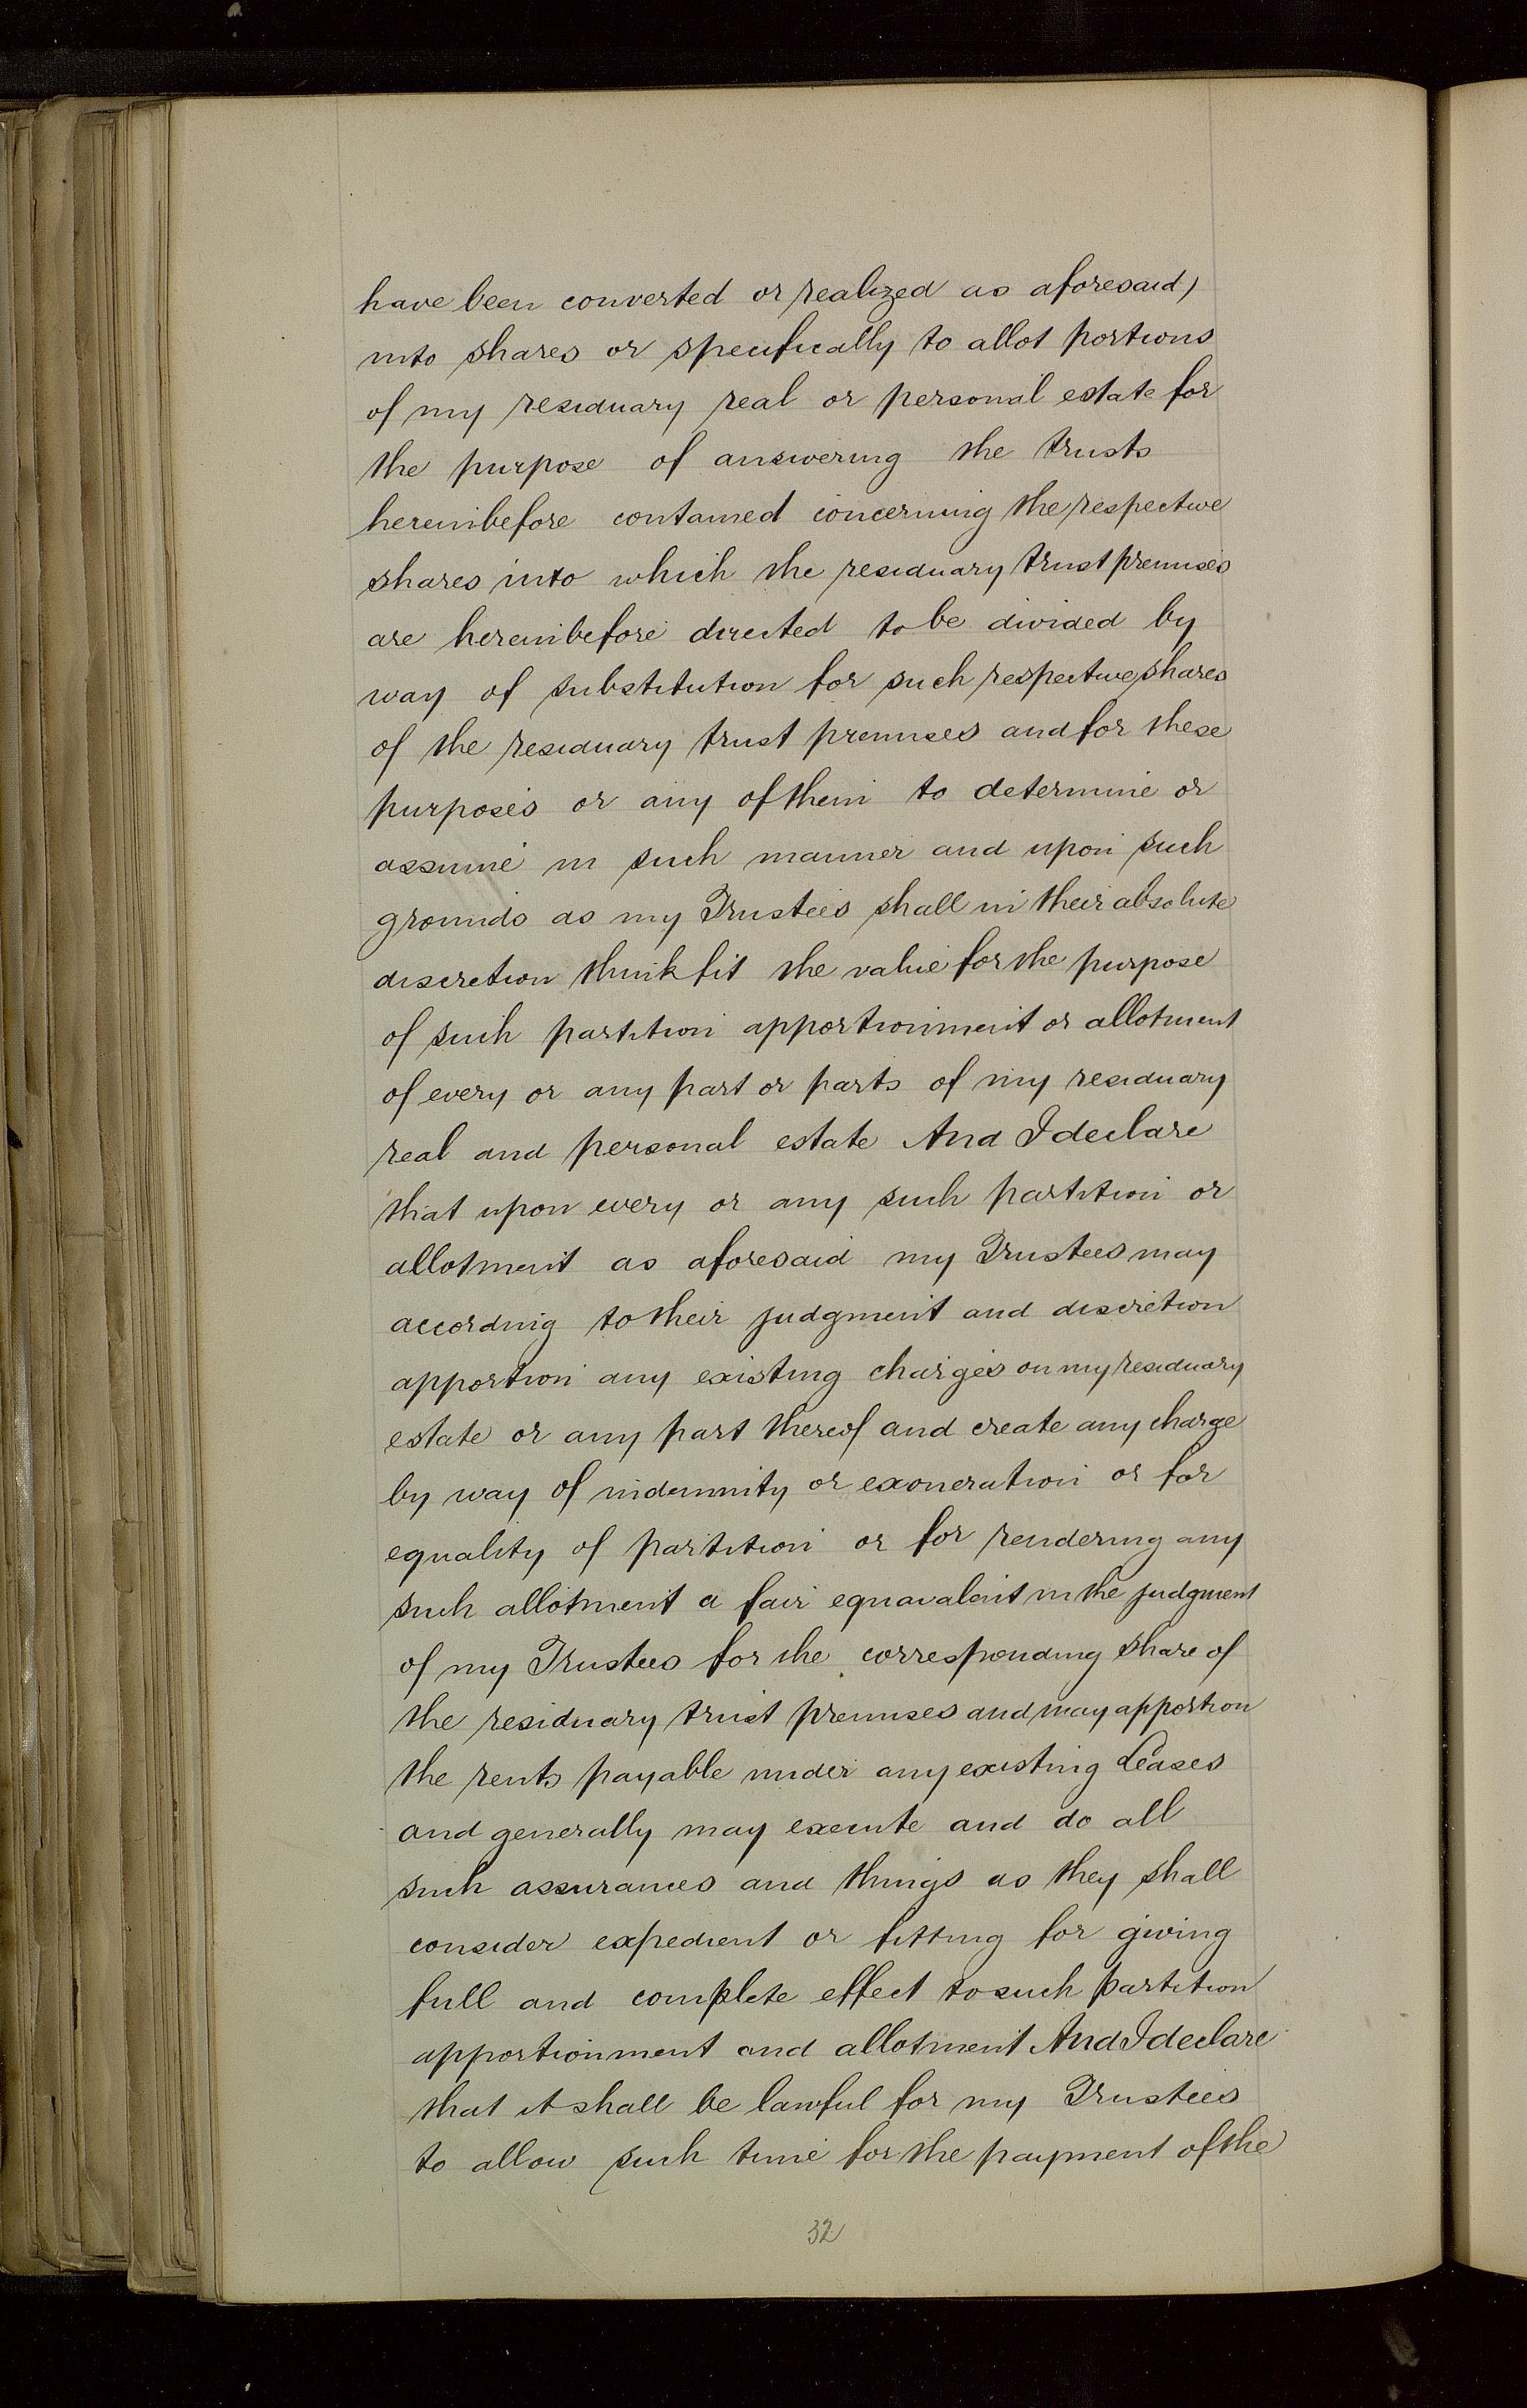 have been converted or realized as aforesaid)
into shares or specifically to allot portions
of my residuary real or personal estate for
the purpose of answering the trusts
hereinbefore contained concerning the respective
shares into which the residuary trust premises
are hereinbefore directed to be divided by
way of substitution for such respective shares
of the residuary trust premises and for these
purposes or any of them to determine or
assume in such manner and upon such
grounds as my Trustees shall in their absolute
discretion think fit the value for the purpose
of such partition apportionment or allotment
of every or any part or parts of my residuary
real and personal estate And I declare
that upon every or any such partition or
allotment as aforesaid my Trustees may
according to their judgment and discretion
apportion any existing charges on my residuary
estate or any part thereof and create any charge
by way of indemnity or exoneration or for
equality of partition or for rendering any
such allotment a fair equavalent in the judgment
of my Trustees for the corresponding share of
the residuary trust premises and may apportion
the rents payable under any existing Leases
and generally may execute and do all
such assurances and things as they shall
consider expedient or fitting for giving
full and complete effect to such partition
apportionment and allotment And I declare
that it shall be lawful for my Trustees
to allow such time for the payment of the
32